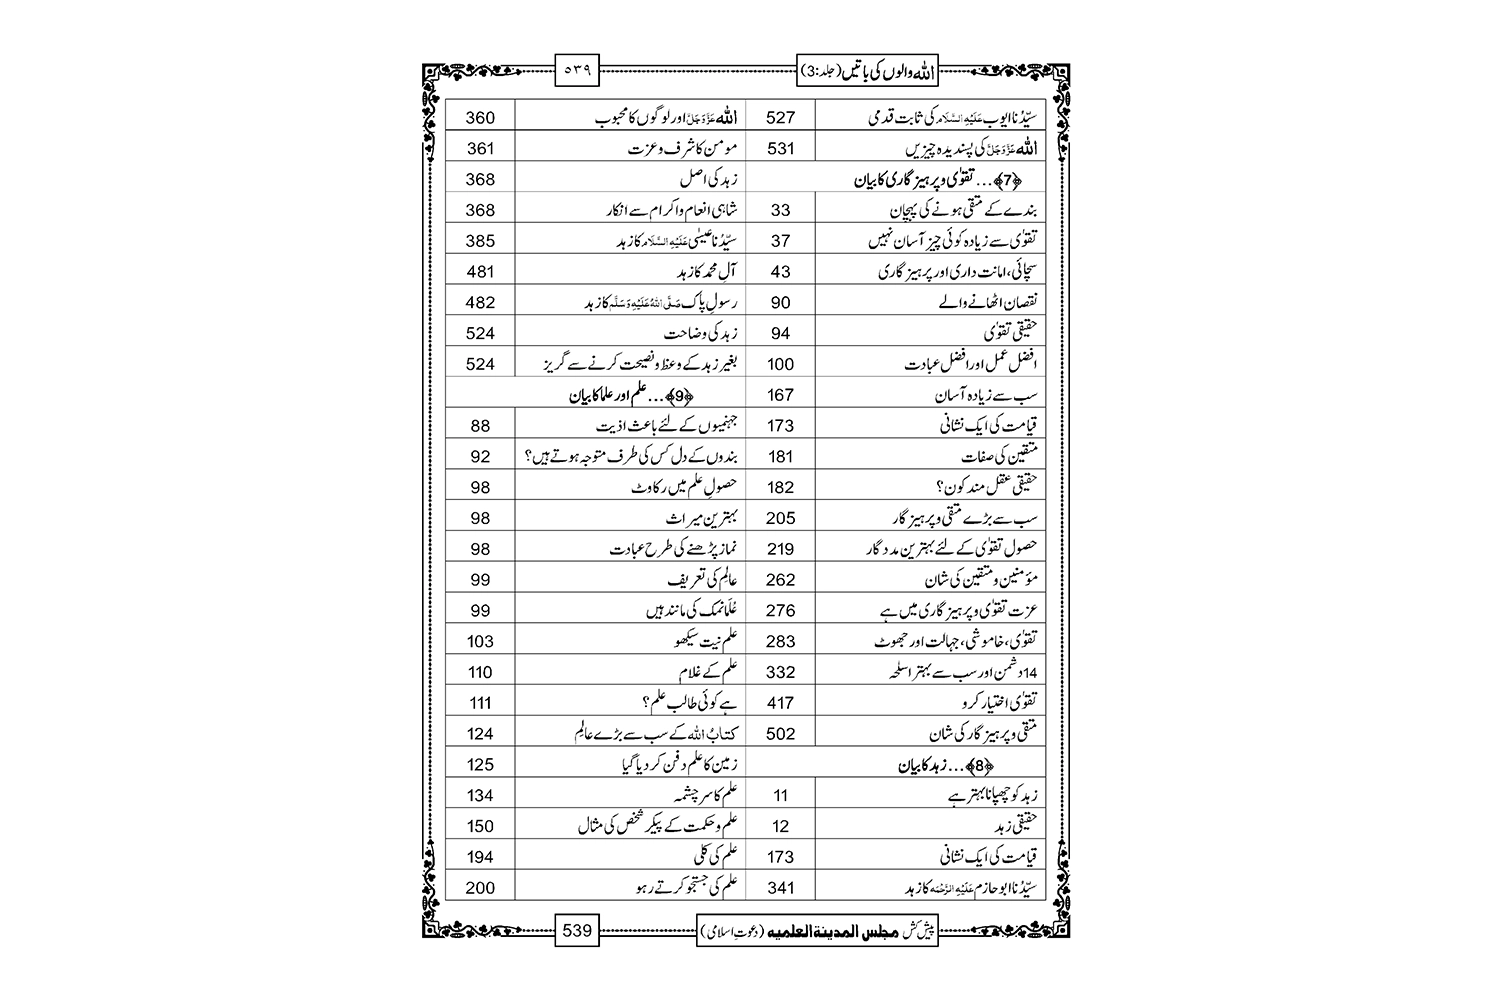 اللہ والوں کی باتیں (جلد:3)
٥٣٩
سیِّدُنا ایوب عَلَیْہِ السَّلَام کی ثابت قدمی 527
اللہ عَزَّوَجَلَّ کی پسندیدہ چیزیں 531
﴿7﴾... تقوٰی و پرہیز گاری کا بیان
بندے کے متقی ہونے کی پہچان 33
تقوٰی سے زیادہ کوئی چیز آسان نہیں 37
سچائی، امانت داری اور پرہیز گاری 43
نقصان اٹھانے والے 90
حقیقی تقوٰی 94
افضل عمل اور افضل عبادت 100
سب سے زیادہ آسان 167
قیامت کی ایک نشانی 173
متقین کی صفات 181
حقیقی عقل مند کون؟ 182
سب سے بڑے متقی و پرہیز گار 205
حصول تقوٰی کے لئے بہترین مدد گار 219
مؤمنین و متقین کی شان 262
عزت تقوٰی و پرہیز گاری میں ہے 276
تقوٰی، خاموشی، جہالت اور جھوٹ 283
14 دشمن اور سب سے بہتر اسلحہ 332
تقوٰی اختیار کرو 417
متقی و پرہیز گار کی شان 502
﴿8﴾... زہد کا بیان
زہد کو چھپانا بہتر ہے 11
حقیقی زہد 12
قیامت کی ایک نشانی 173
سیِّدُنا ابو حازم عَلَیْہِ الرَّحْمَہ کا زہد 341
اللہ عَزَّوَجَلَّ اور لوگوں کا محبوب 360
مومن کا شرف و عزت 361
زہد کی اصل 368
شاہی انعام واکرام سے انکار 368
سیِّدُنا عیسٰی عَلَیْہِ السَّلَام کا زہد 385
آلِ محمد کا زہد 481
رسولِ پاک صَلَّی اللہُ عَلَیْہِ وَسَلَّم کا زہد 482
زہد کی وضاحت 524
بغیر زہد کے وعظ و نصیحت کرنے سے گریز 524
﴿9﴾... علم اور علما کا بیان
جہنمیوں کے لئے باعث اذیت 88
بندوں کے دل کس کی طرف متوجہ ہوتے ہیں؟ 92
حصولِ علم میں رکاوٹ 98
بہترین میراث 98
نماز پڑھنے کی طرح عبادت 98
عالِم کی تعریف 99
عُلَما نمک کی مانند ہیں 99
علم نیت سیکھو 103
علم کے غلام 110
ہے کوئی طالب علم؟ 111
کتابُ اللہ کے سب سے بڑے عالِم 124
زمین کا علم دفن کر دیا گیا 125
علم کا سر چشمہ 134
علم و حکمت کے پیکر شخص کی مثال 150
علم کی کلی 194
علم کی جستجو کرتے رہو 200
پیش کش مجلس المدینۃ العلمیہ (دعوتِ اسلامی)
539